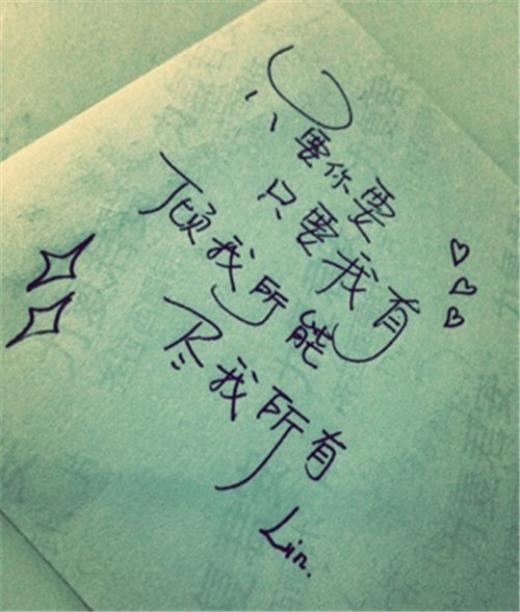 只要你要
只要我有
倾我所能
尽我所有
Lin.